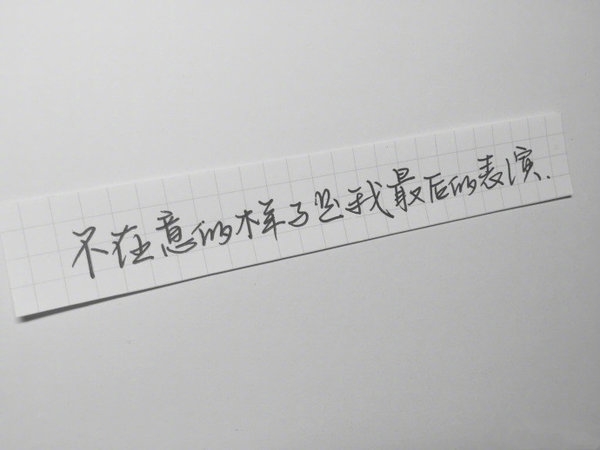 不在意的样子是我最后的表演.